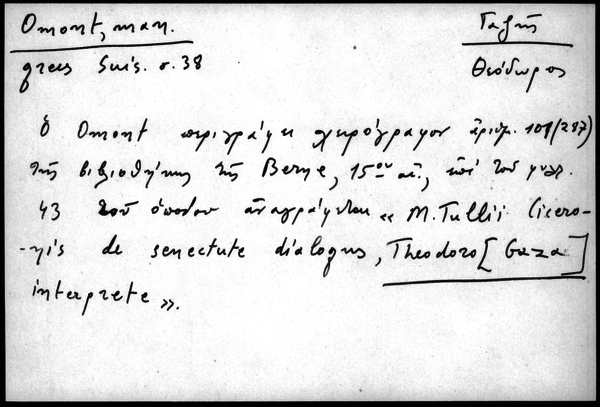 Omont, man.
grecs Suis. σ. 38
Γαζῆς
Θεόδωρος
Ὁ Omont περιγράφει χειρόγραφον ἀριθμ. 101 (287)
τῆς βιβλιοθήκης τῆς Berne, 15ου αἰ., ἐπὶ τοῦ φύλλ.
43 τοῦ ὁποίου ἀναγράφεται « M. Tullii Cicero-
-nis de senectute dialogus, Theodoro [Gaza]
interprete ».